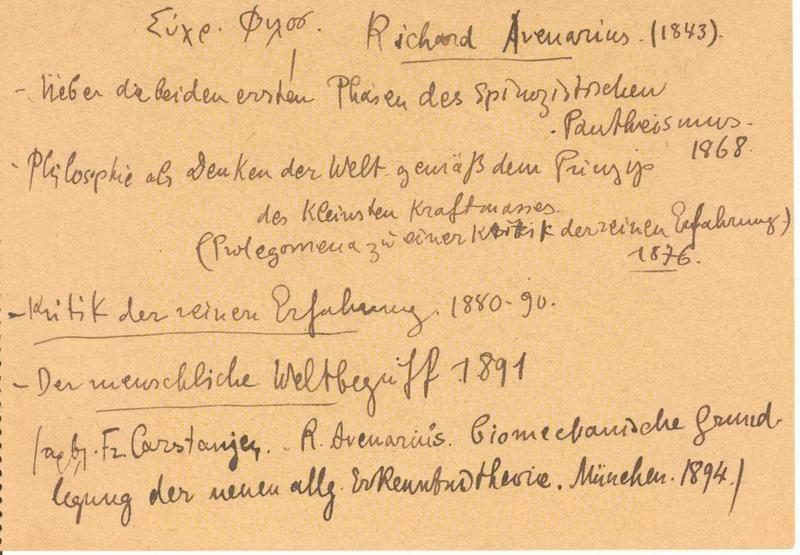 Σύχρ. Φιλοσ. Richard Avenarius. (1843).
- Ueber die beiden ersten Phasen des Spinozistischen
Pantheismus.
1868.
- Philosophie als Denken der Welt gemäß dem Prinzip
des Kleinsten Kraftmasses.
(Prolegomena zu einer Kritik der reinen Erfahrung)
1876.
- Kritik der reinen Erfahrung. 1880-90.
- Der menschliche Weltbegriff 1891
Fr. Carstanjen. R. Avenarius. biomechanische Grund-
legung der neuen allg. Erkenntnistheorie. München. 1894.)